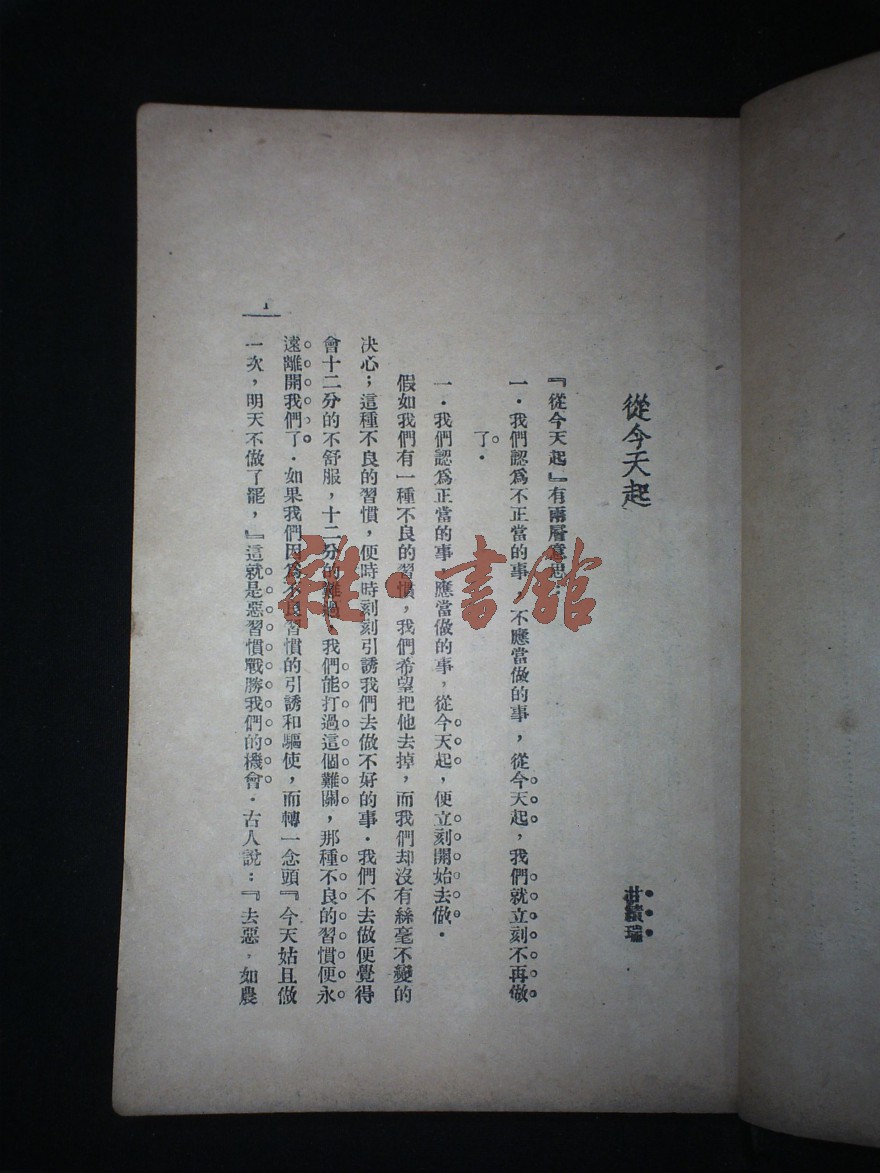 從今天起
甘績瑞
『從今天起』有兩層意思：
一．我們認爲不正當的事，不應當做的事，從今天起，我們就立刻不再做
了．
一．我們認爲正當的事，應當做的事，從今天起，便立刻開始去做．
假如我們有一種不良的習慣，我們希望把他去掉，而我們却沒有絲毫不變的
决心；這種不良的習慣，便時時刻刻引誘我們去做不好的事．我們不去做便覺得
會十二分的不舒服，十二分的難過．我們能打過這個難關，那種不良的習慣便永
遠離開我們了．如果我們因爲不良習慣的引誘和驅使，而轉一念頭『今天姑且做
一次，明天不做了罷，』這就是惡習慣戰勝我們的機會．古人說：『去惡，如農
1
雜·書館